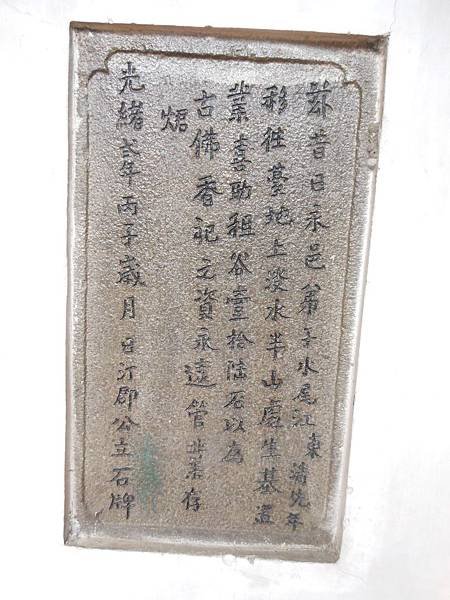 茲昔日永邑弟子水尾江東濤先年
移徃臺地上淡水半山處生基置
業喜助租谷壹拾陸石以為
古佛香祀之資永遠管業存
炤
光緒弍年丙子歲月日汀郡公立石牌